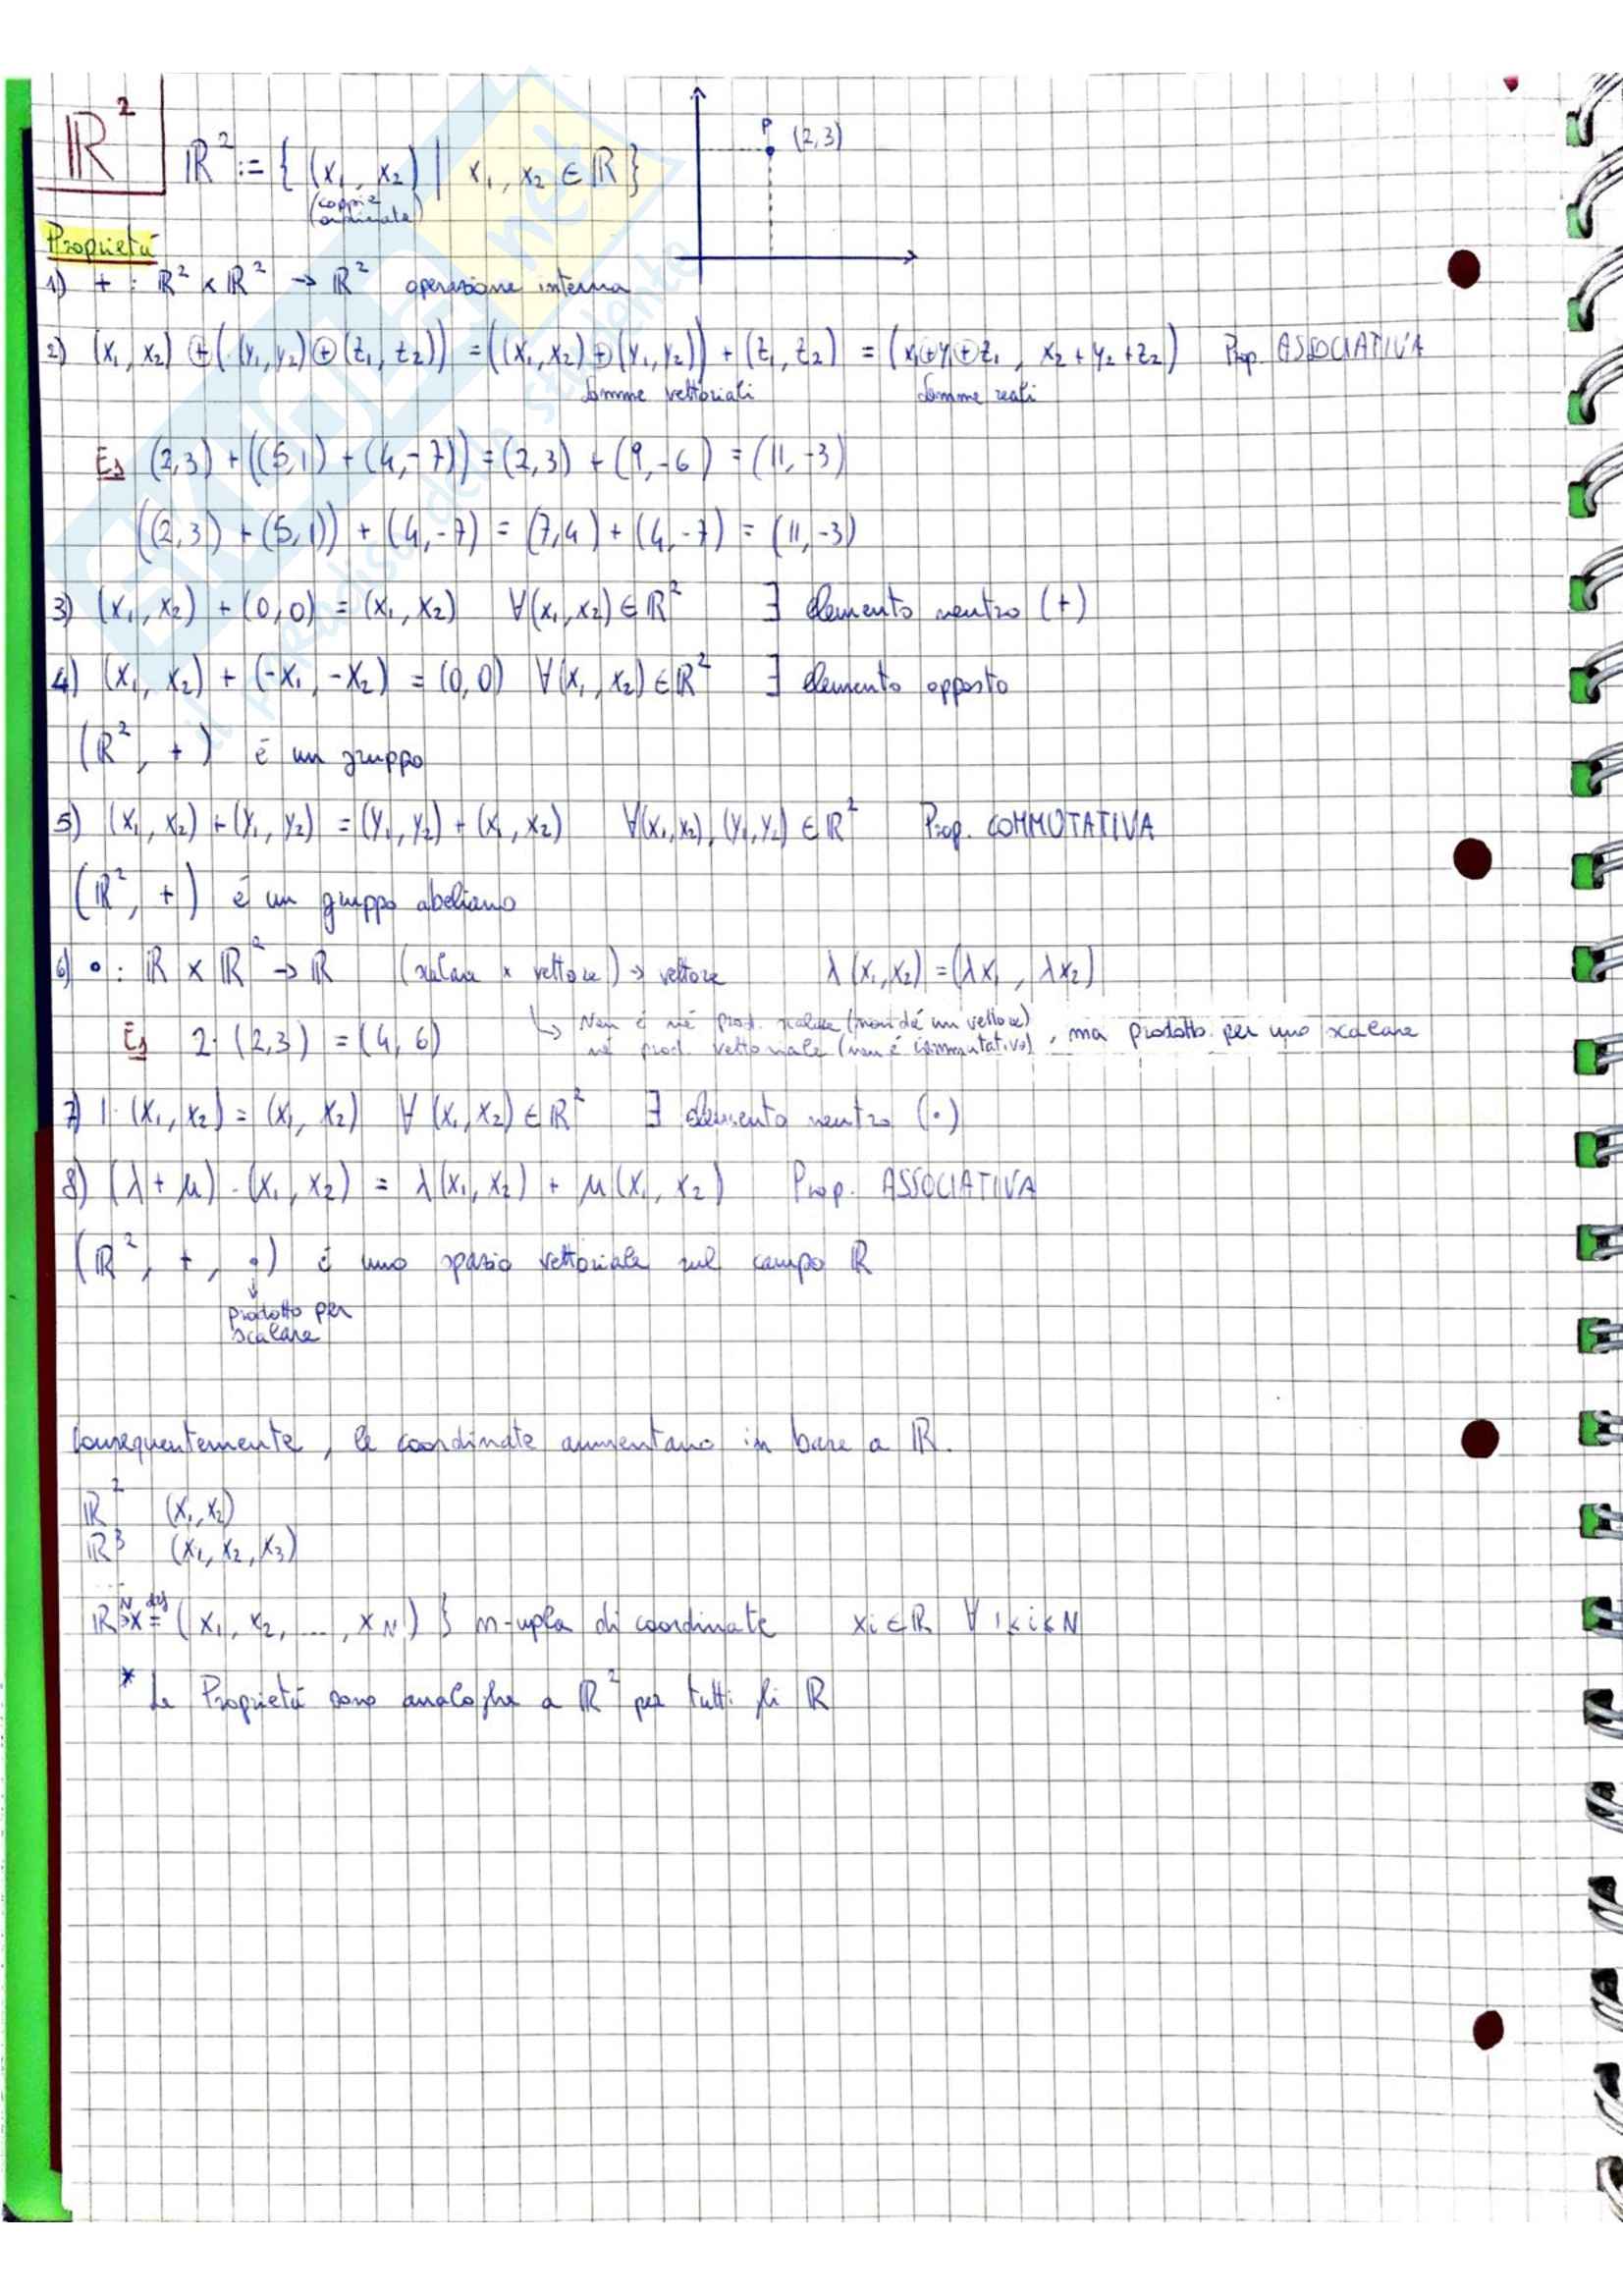 ℝ²
ℝ² := { (x₁, x₂) | x₁, x₂ ∈ ℝ }
(coppie
ordinate)
P (2,3)
Proprietà
1) + : ℝ² × ℝ² → ℝ² operazione interna
2) (x₁, x₂) ⊕ ((y₁, y₂) ⊕ (z₁, z₂)) = ((x₁, x₂) ⊕ (y₁, y₂)) + (z₁, z₂) = (x₁ ⊕ y₁ ⊕ z₁, x₂ + y₂ + z₂) Prop. ASSOCIATIVA
somme vettoriali somme reali
Es (2,3) + ((5,1) + (4,-7)) = (2,3) + (9,-6) = (11,-3)
((2,3) + (5,1)) + (4,-7) = (7,4) + (4,-7) = (11,-3)
3) (x₁, x₂) + (0,0) = (x₁, x₂) ∀(x₁, x₂) ∈ ℝ² ∃ elemento neutro (+)
4) (x₁, x₂) + (-x₁, -x₂) = (0,0) ∀(x₁, x₂) ∈ ℝ² ∃ elemento opposto
(ℝ², +) è un gruppo
5) (x₁, x₂) + (y₁, y₂) = (y₁, y₂) + (x₁, x₂) ∀(x₁, x₂), (y₁, y₂) ∈ ℝ² Prop. COMMUTATIVA
(ℝ², +) è un gruppo abeliano
6) • : ℝ × ℝ² → ℝ (scalare × vettore) → vettore λ(x₁, x₂) = (λx₁, λx₂)
Es 2·(2,3) = (4,6)
↳ Non è né prod. scalare (non dà un vettore)
né prod. vettoriale (non è commutativo), ma prodotto per uno scalare
7) 1·(x₁, x₂) = (x₁, x₂) ∀(x₁, x₂) ∈ ℝ² ∃ elemento neutro (·)
8) (λ + μ)·(x₁, x₂) = λ(x₁, x₂) + μ(x₁, x₂) Prop. ASSOCIATIVA
(ℝ², +, •) è uno spazio vettoriale sul campo ℝ
↓
prodotto per
scalare
Conseguentemente, le coordinate aumentano in base a ℝ.
ℝ² (x₁, x₂)
ℝ³ (x₁, x₂, x₃)
ℝᴺ ∋ x def= (x₁, x₂, ..., x_N) } n-upla di coordinate xᵢ ∈ ℝ ∀ 1 ≤ i ≤ N
* Le Proprietà sono analoghe a ℝ² per tutti gli ℝ
SKUOLA.net
il paradiso dello studente